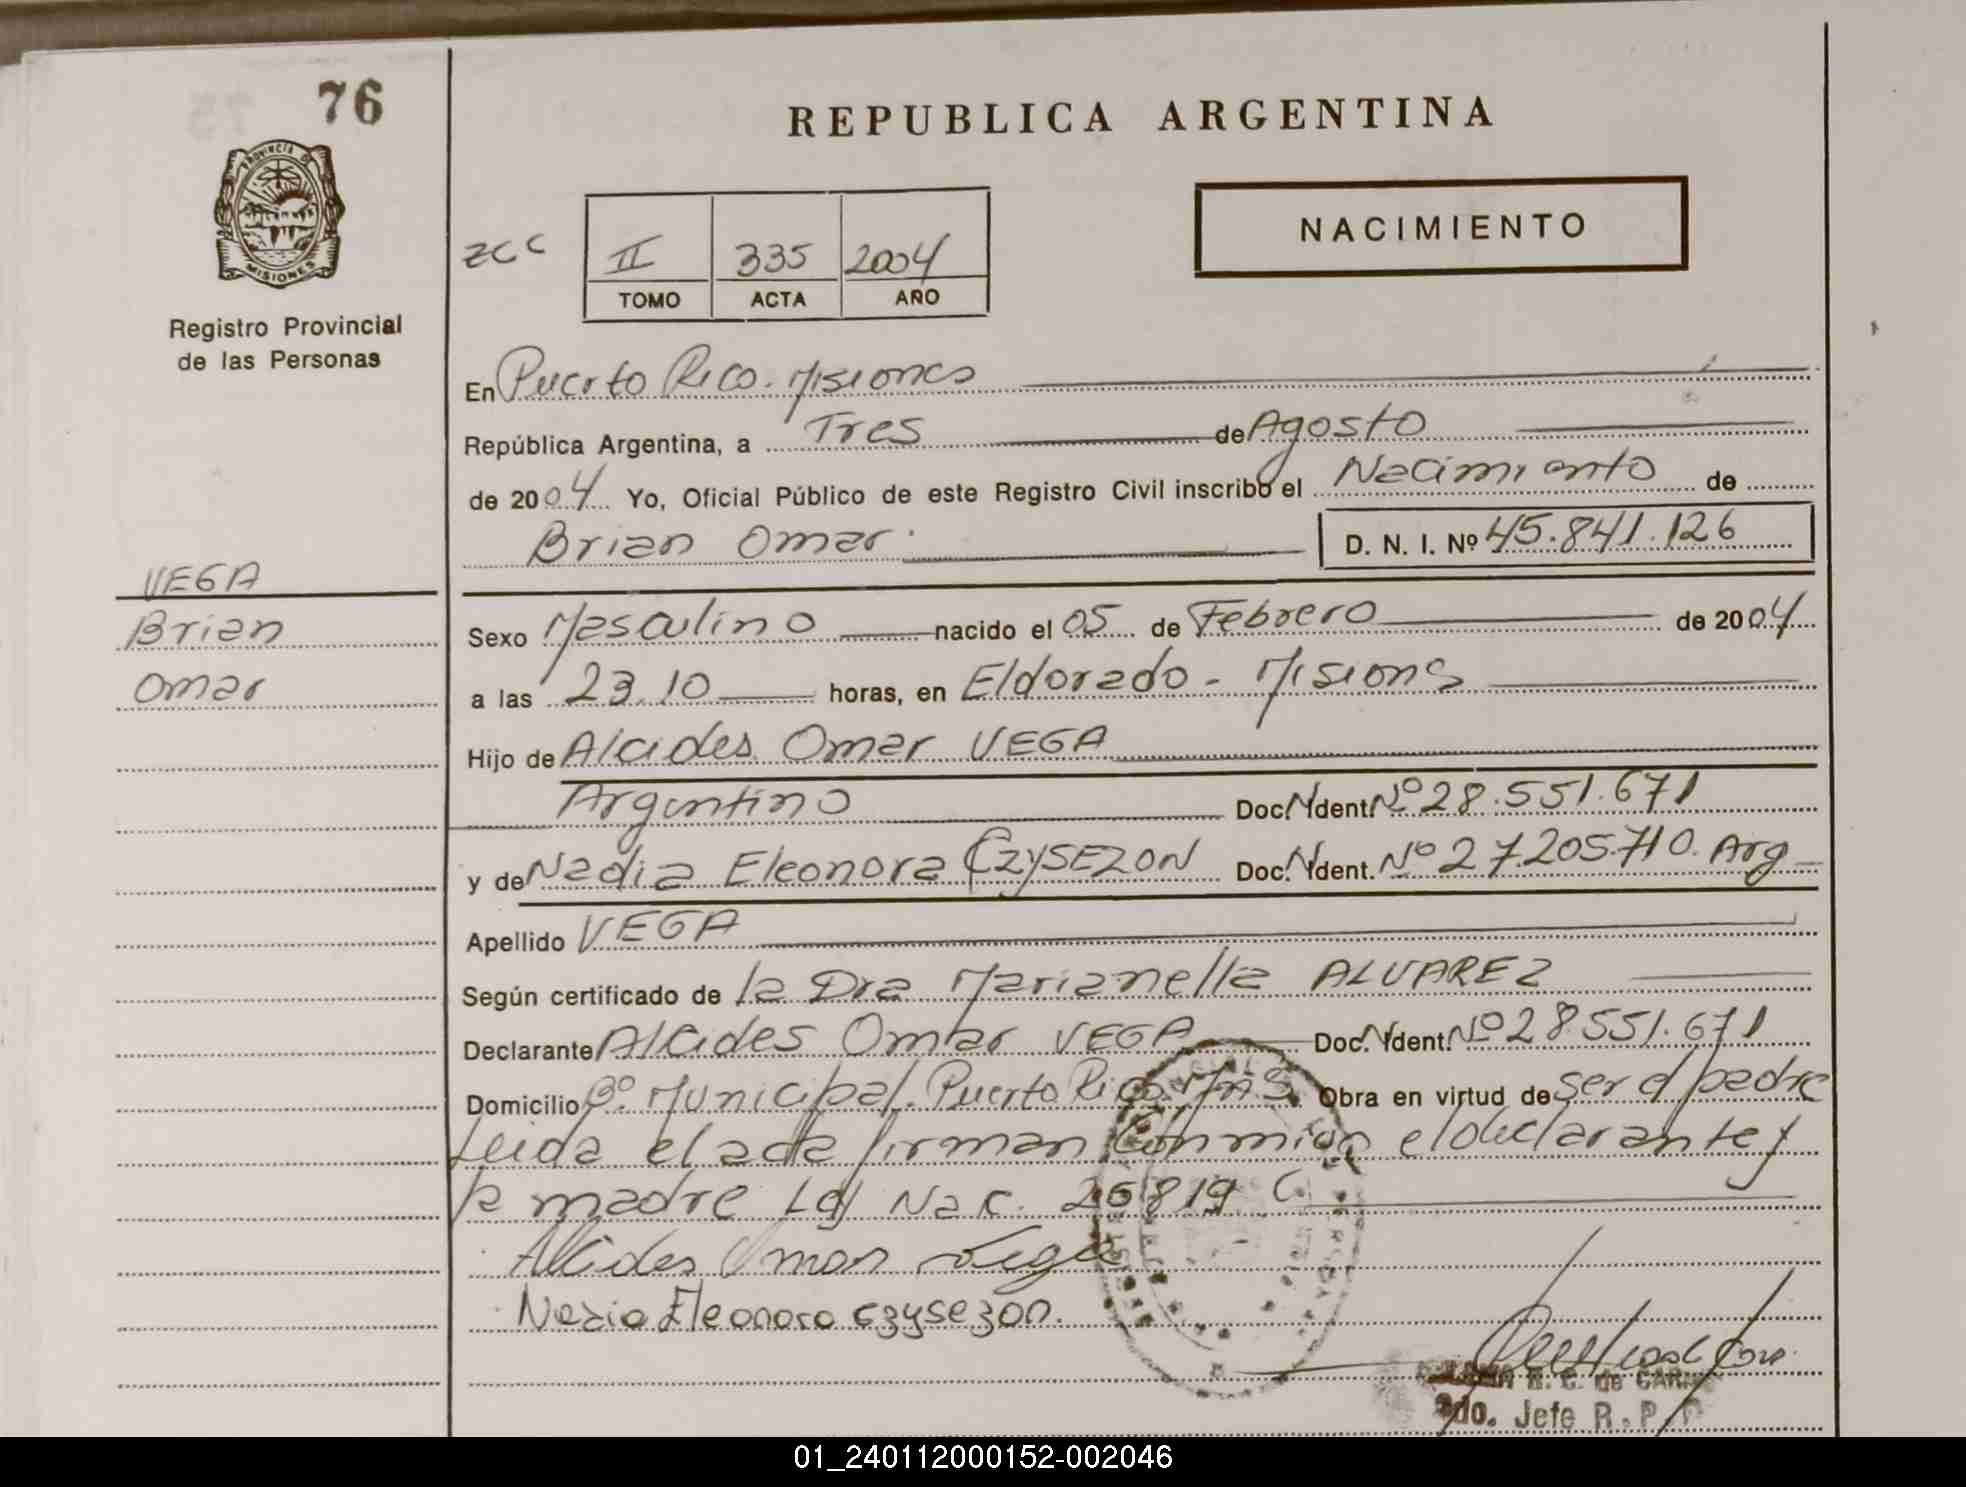 76
REPUBLICA ARGENTINA
PROVINCIA DE
MISIONES
Registro Provincial
de las Personas
ZCC II 335 2004
TOMO ACTA AÑO
NACIMIENTO
En Puerto Rico. Misiones
República Argentina, a Tres de Agosto
de 2004 Yo, Oficial Público de este Registro Civil inscribo el Nacimiento de
Brian Omar D. N. I. Nº 45.841.126
VEGA
Brian
Omar
Sexo Masculino nacido el 05 de Febrero de 2004
a las 23.10 horas, en Eldorado - Misions
Hijo de Alcides Omar VEGA
Argentino Doc. N Ident. Nº 28.551.671
y de Nadia Eleonora CZYSEZON Doc. N Ident. Nº 27.205.710. Arg
Apellido VEGA
Según certificado de la Dra Marianella ALVAREZ
Declarante Alcides Omar VEGA Doc. N Ident. Nº 28.551.671
Domicilio Bº. Municipal. Puerto Rico. Mns. Obra en virtud de ser el padre
Leida el acta firman conmigo el declarante y
la madre Ley Nac. 25819
Alcides Omar Vega
Nadia Eleonora Czysezon.
E. C. de
2do. Jefe R. P. P.
01_240112000152-002046